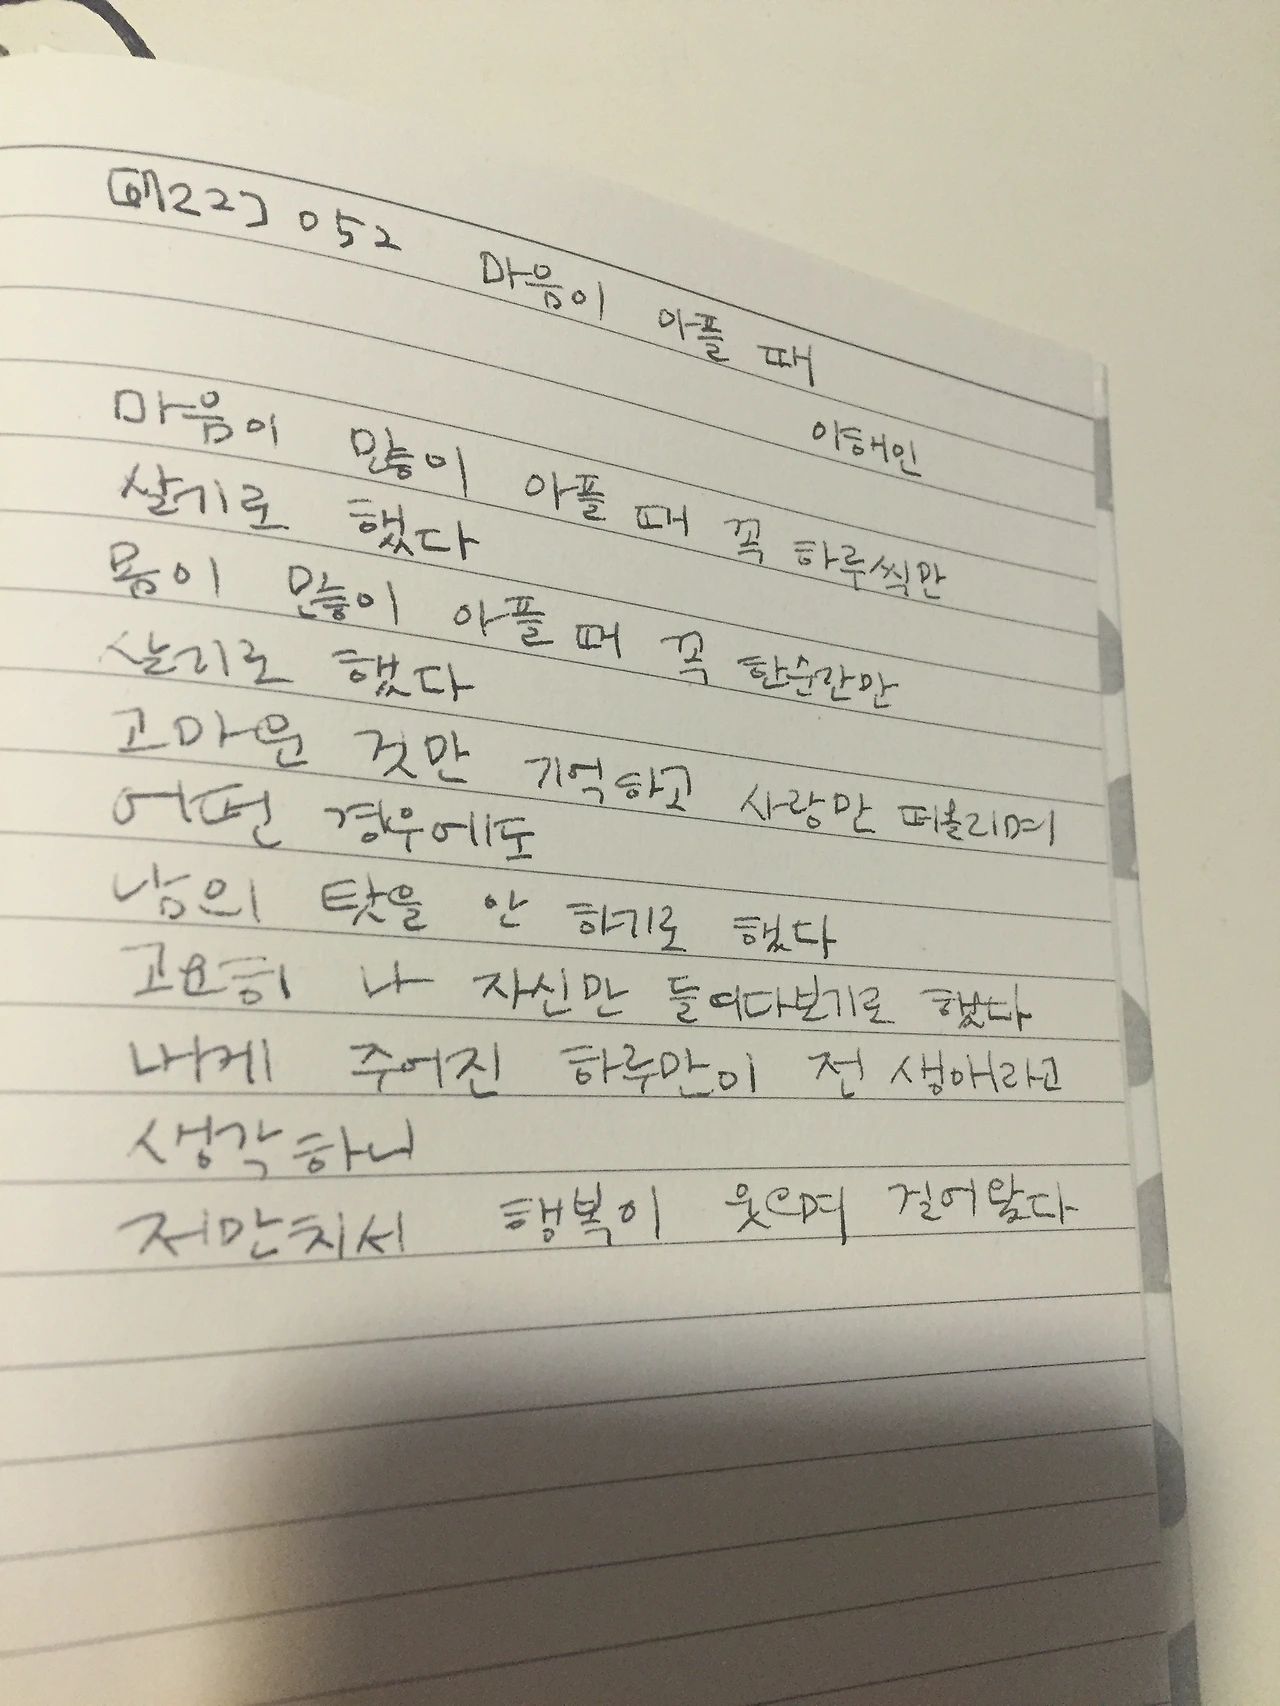 [6122] 052 마음이 아플 때
이해인
마음이 많이 아플 때 꼭 하루씩만
살기로 했다
몸이 많이 아플 때 꼭 한순간만
살기로 했다
고마운 것만 기억하고 사랑만 떠올리며
어떤 경우에도
남의 탓을 안 하기로 했다
고요히 나 자신만 들여다보기로 했다
내게 주어진 하루만이 전 생애라고
생각하니
저만치서 행복이 웃으며 걸어왔다